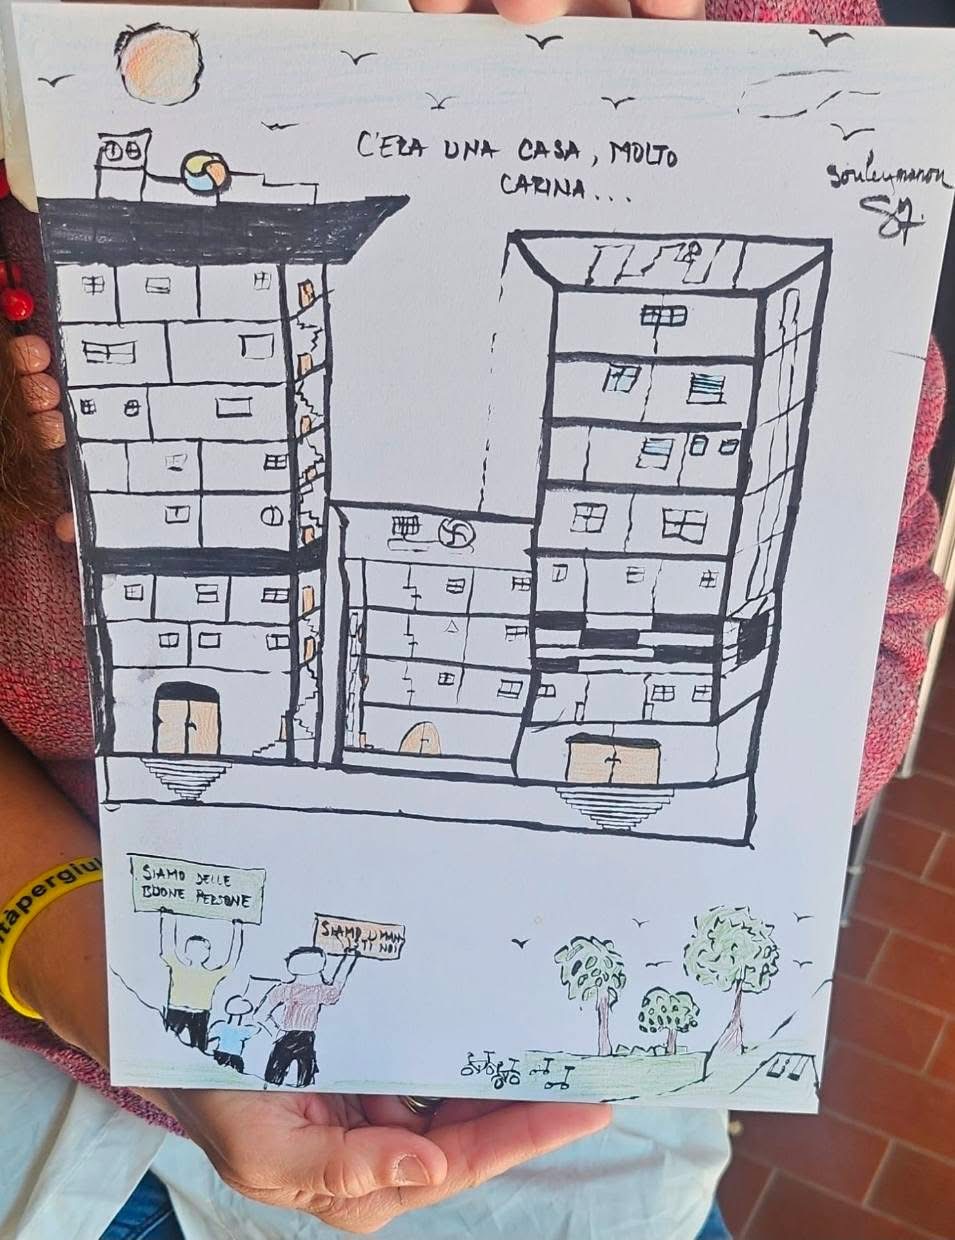 C'ERA UNA CASA, MOLTO
CARINA...
Souleymanou
SIAMO DELLE
BUONE PERSONE
SIAMO UMANI